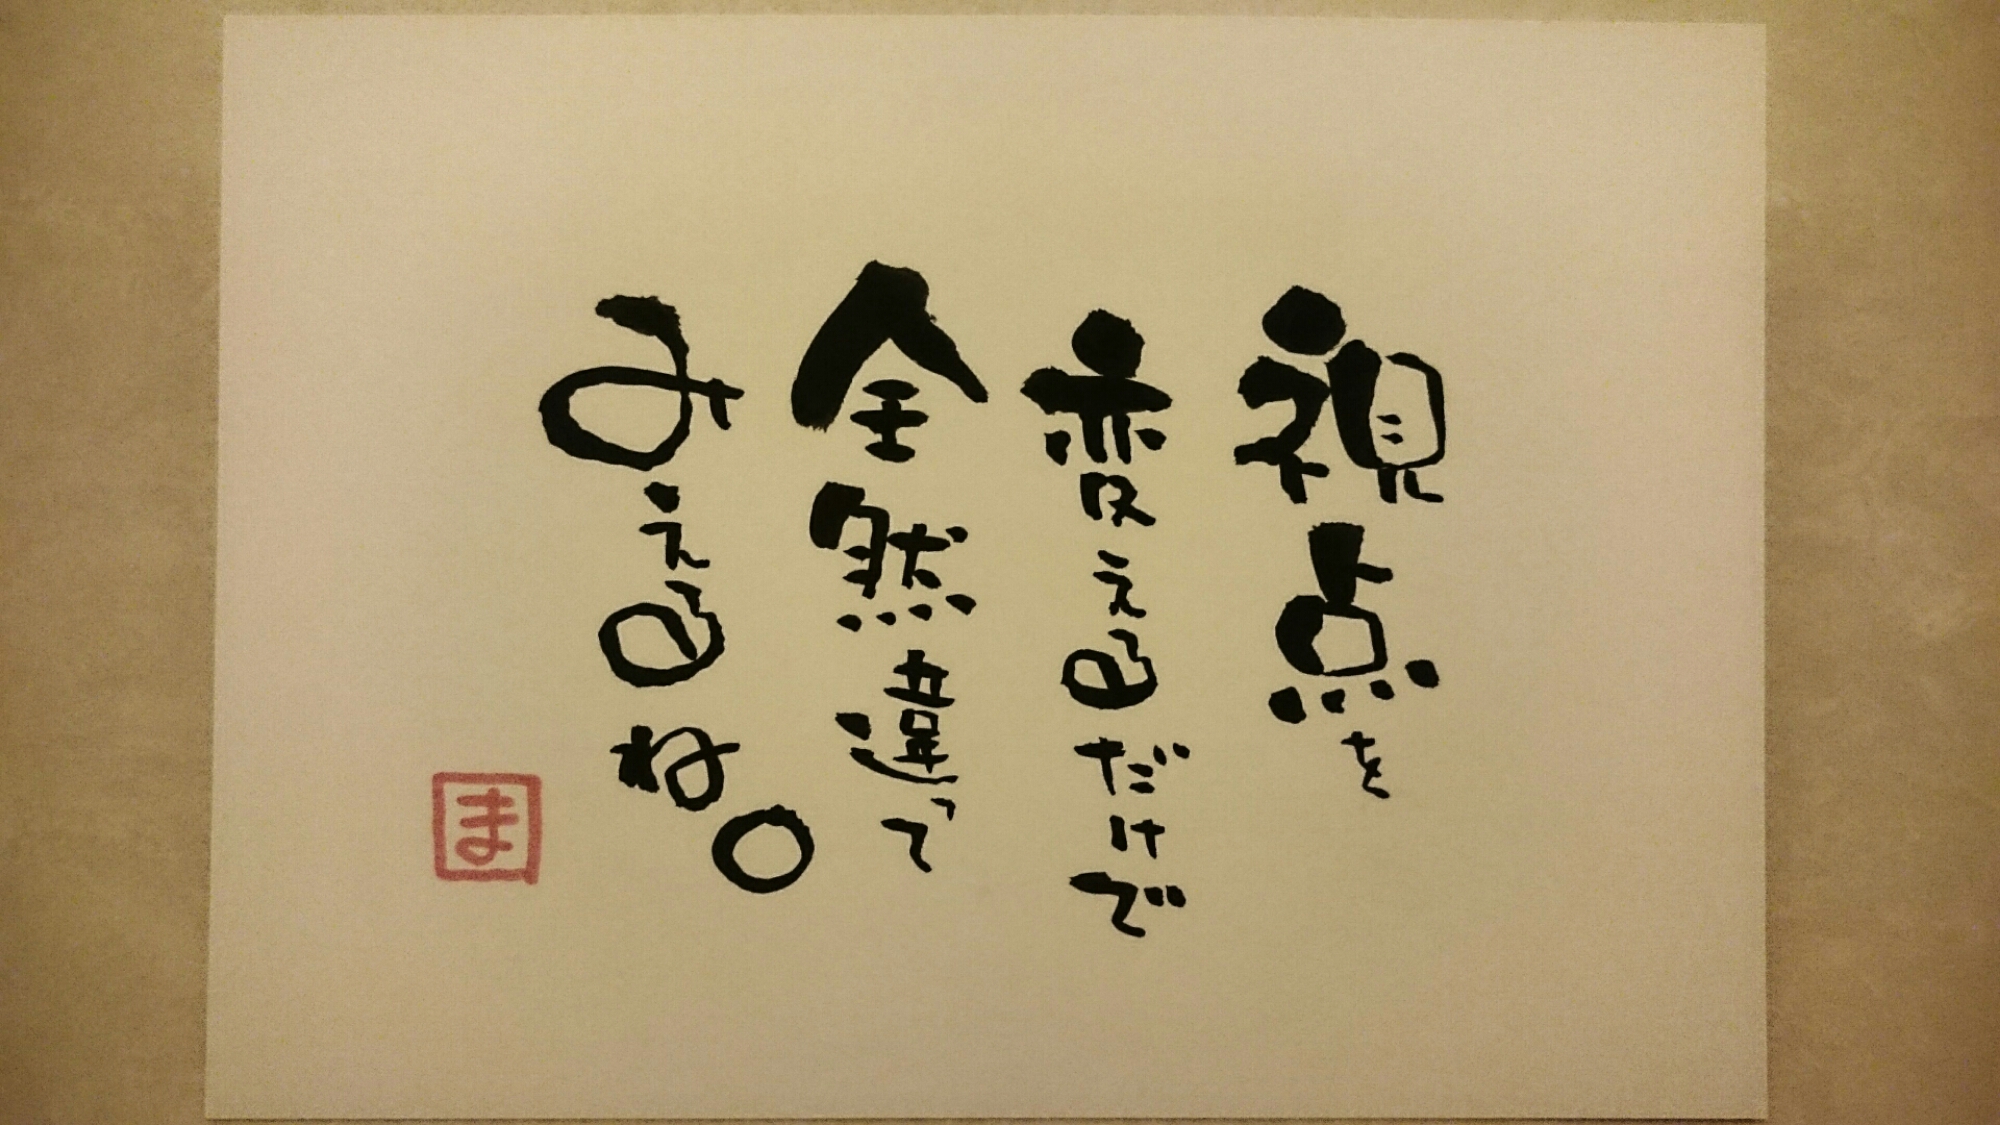 視点を
変えるだけで
全然違って
みえるね。
ま